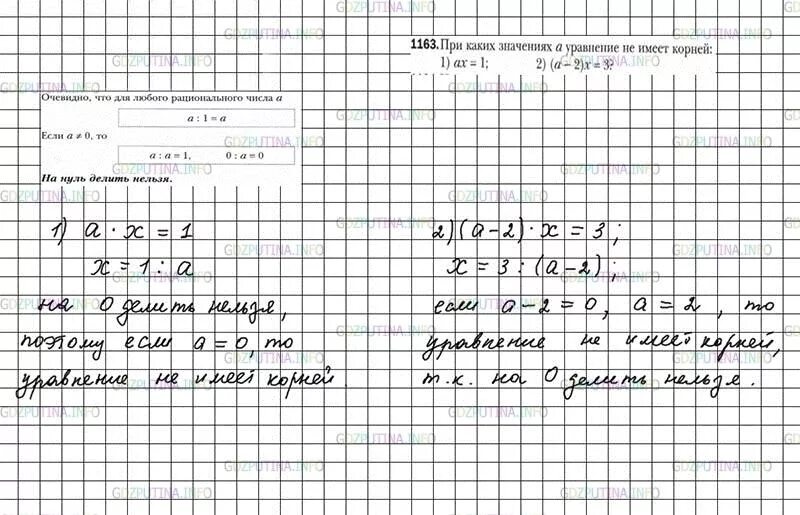 1163. При каких значениях a уравнение не имеет корней:
1) ax = 1; 2) (a – 2)x = 3?
Очевидно, что для любого рационального числа a
a : 1 = a
Если a ≠ 0, то
a : a = 1, 0 : a = 0
На нуль делить нельзя.
1) a · x = 1
x = 1 : a
на 0 делить нельзя,
поэтому если a = 0, то
уравнение не имеет корней.
2) (a – 2) · x = 3;
x = 3 : (a – 2);
если a – 2 = 0, a = 2, то
уравнение не имеет корней,
т.к. на 0 делить нельзя.
GDZPUTINA.INFO